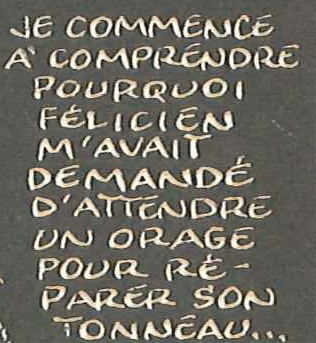 JE COMMENCE
À COMPRENDRE
POURQUOI
FÉLICIEN
M'AVAIT
DEMANDÉ
D'ATTENDRE
UN ORAGE
POUR RÉ-
PARER SON
TONNEAU...